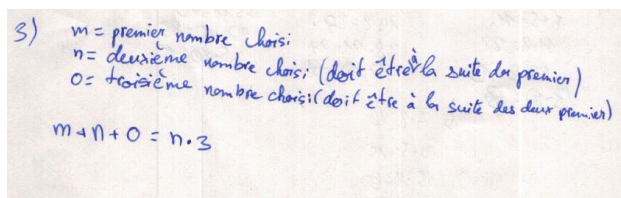 3) m = premier nombre choisi
n = deuxième nombre choisi (doit être à la suite du premier)
o = troisième nombre choisi (doit être à la suite des deux premier)
m + n + o = n · 3